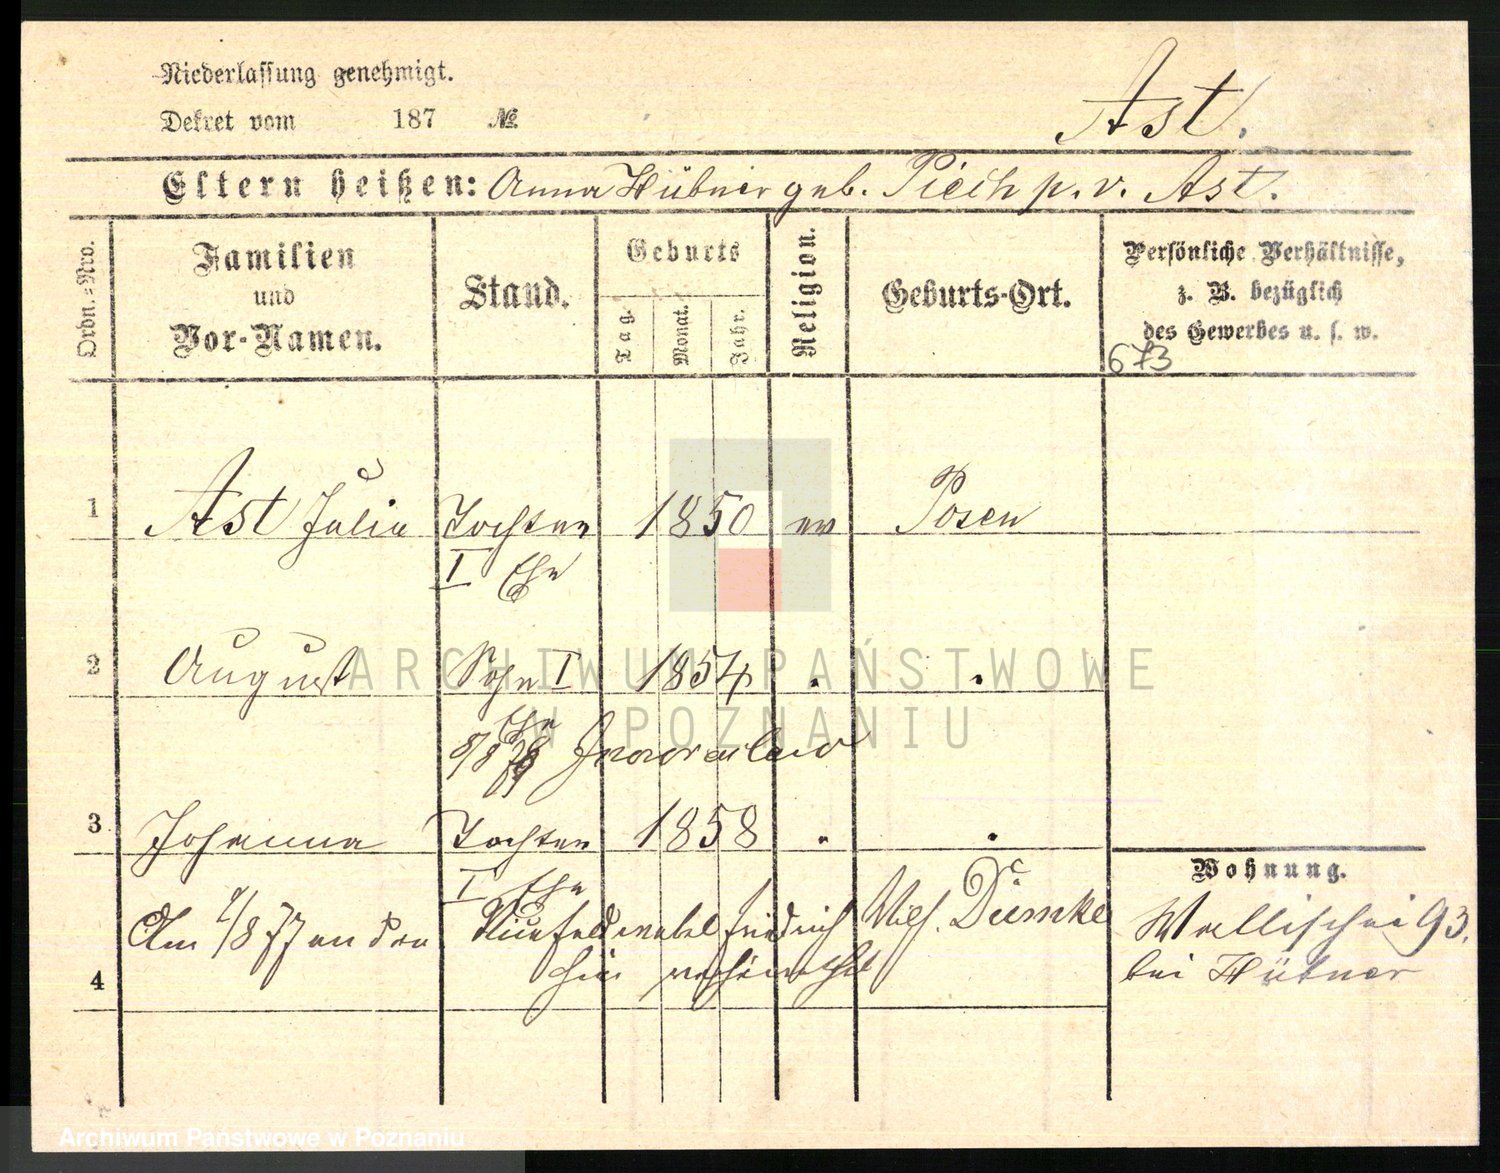 Niederlassung genehmigt.
Dekret vom 187 №
Ast.
Eltern heißen: Anna Hübner geb. Piech p. v. Ast.
Ordn.-Nro.
Familien
und
Vor-Namen.
Stand.
Geburts
Tag.
Monat.
Jahr.
Religion.
Geburts-Ort.
Persönliche Verhältnisse,
z. B. bezüglich
des Gewerbes u. s. w.
673
1 Ast Julia Tochter 1850 ev Posen
I Ehe
2 August Sohn I 1854 . .
Ehe
Inowraclaw
3 Johanna Tochter 1858 . .
I Ehe
Wohnung.
Am /8 77 an den Friedrich Wilh. Dümke
hier verheirathet
Wallischei 93.
bei Hübner
4
ARCHIWUM PAŃSTWOWE
W POZNANIU
Archiwum Państwowe w Poznaniu